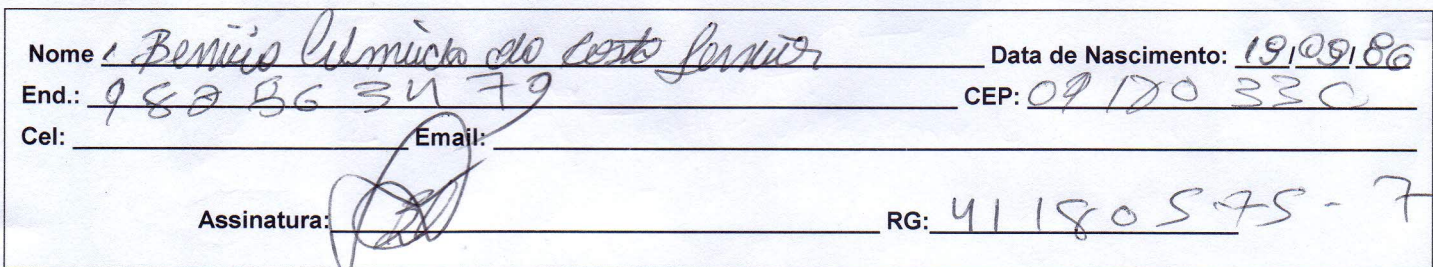 Nome Benicio da Costa Data de Nascimento: 19/09/86
End.: 982863479 CEP: 09180330
Cel: Email:
Assinatura: RG: 41180575-7